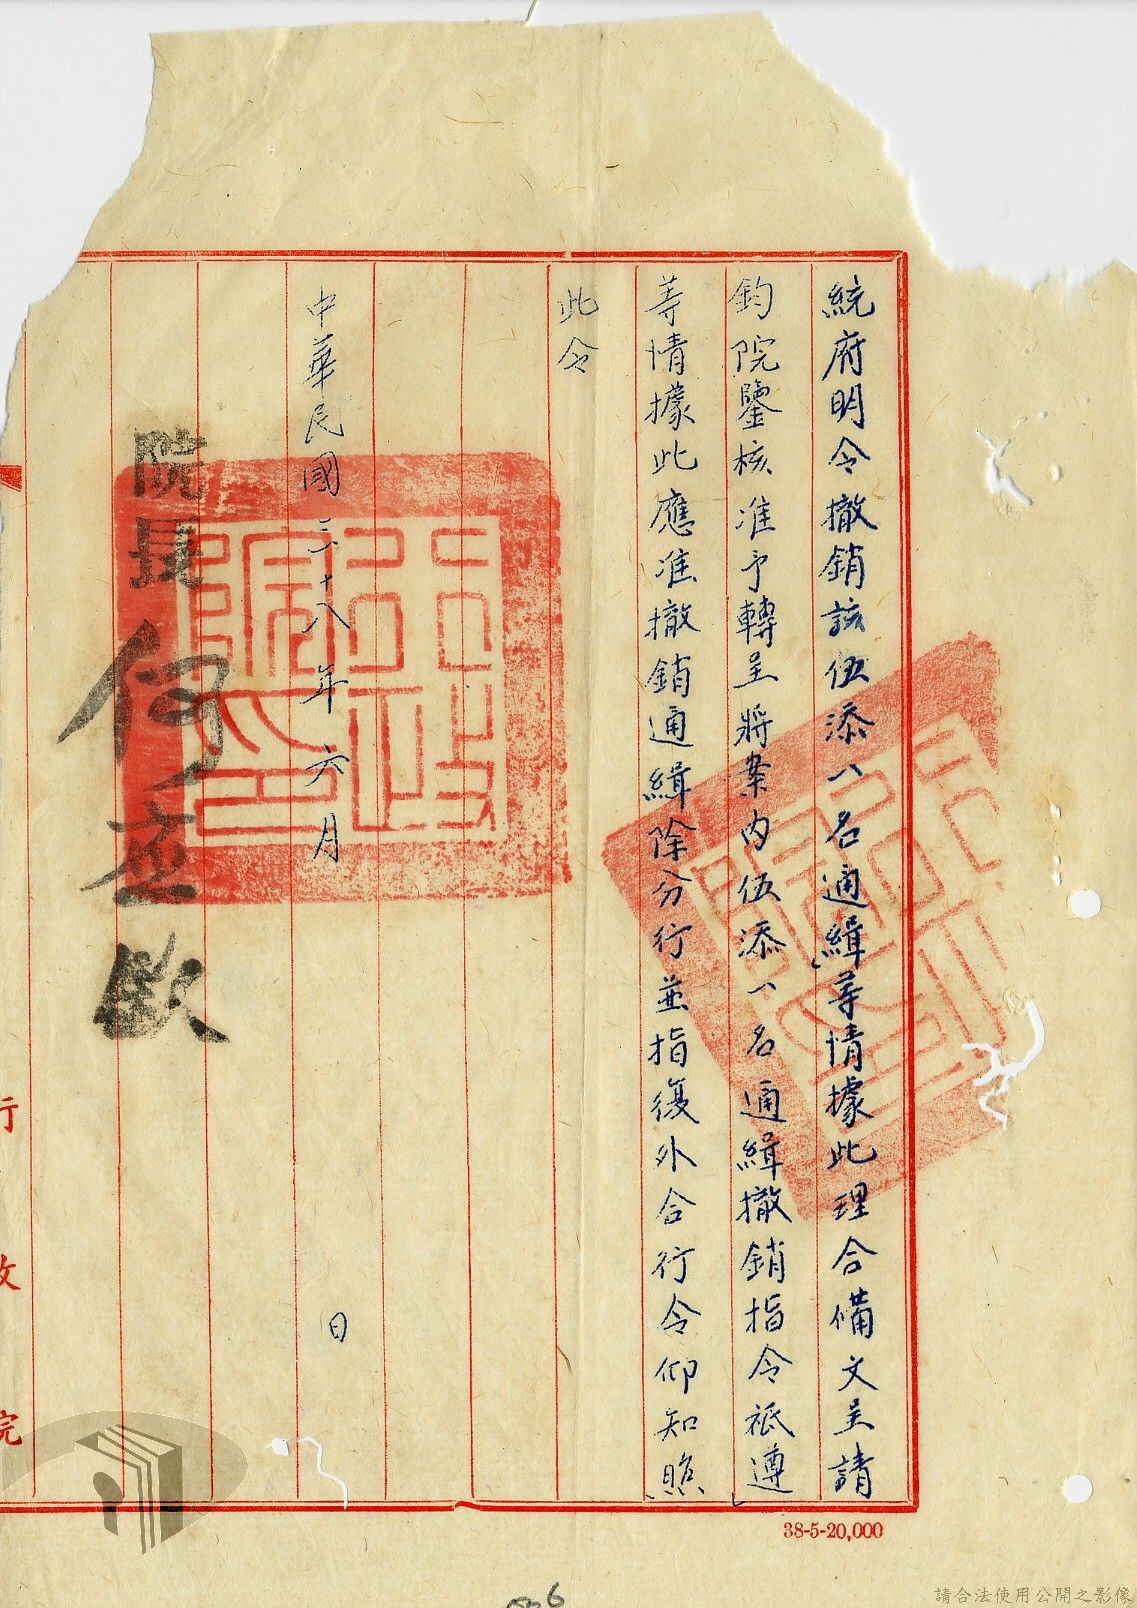 統府明令撤銷該伍添八名通緝」等情據此理合備文呈請
鈞院鑒核准予轉呈將案內伍添八名通緝撤銷指令祇遵」
等情據此應准撤銷通緝除分行並指復外合行令仰知照」
此令
中華民國三十八年六月 日
院長 何應欽
行政院印
行政院
38-5-20,000
請合法使用公開之影像